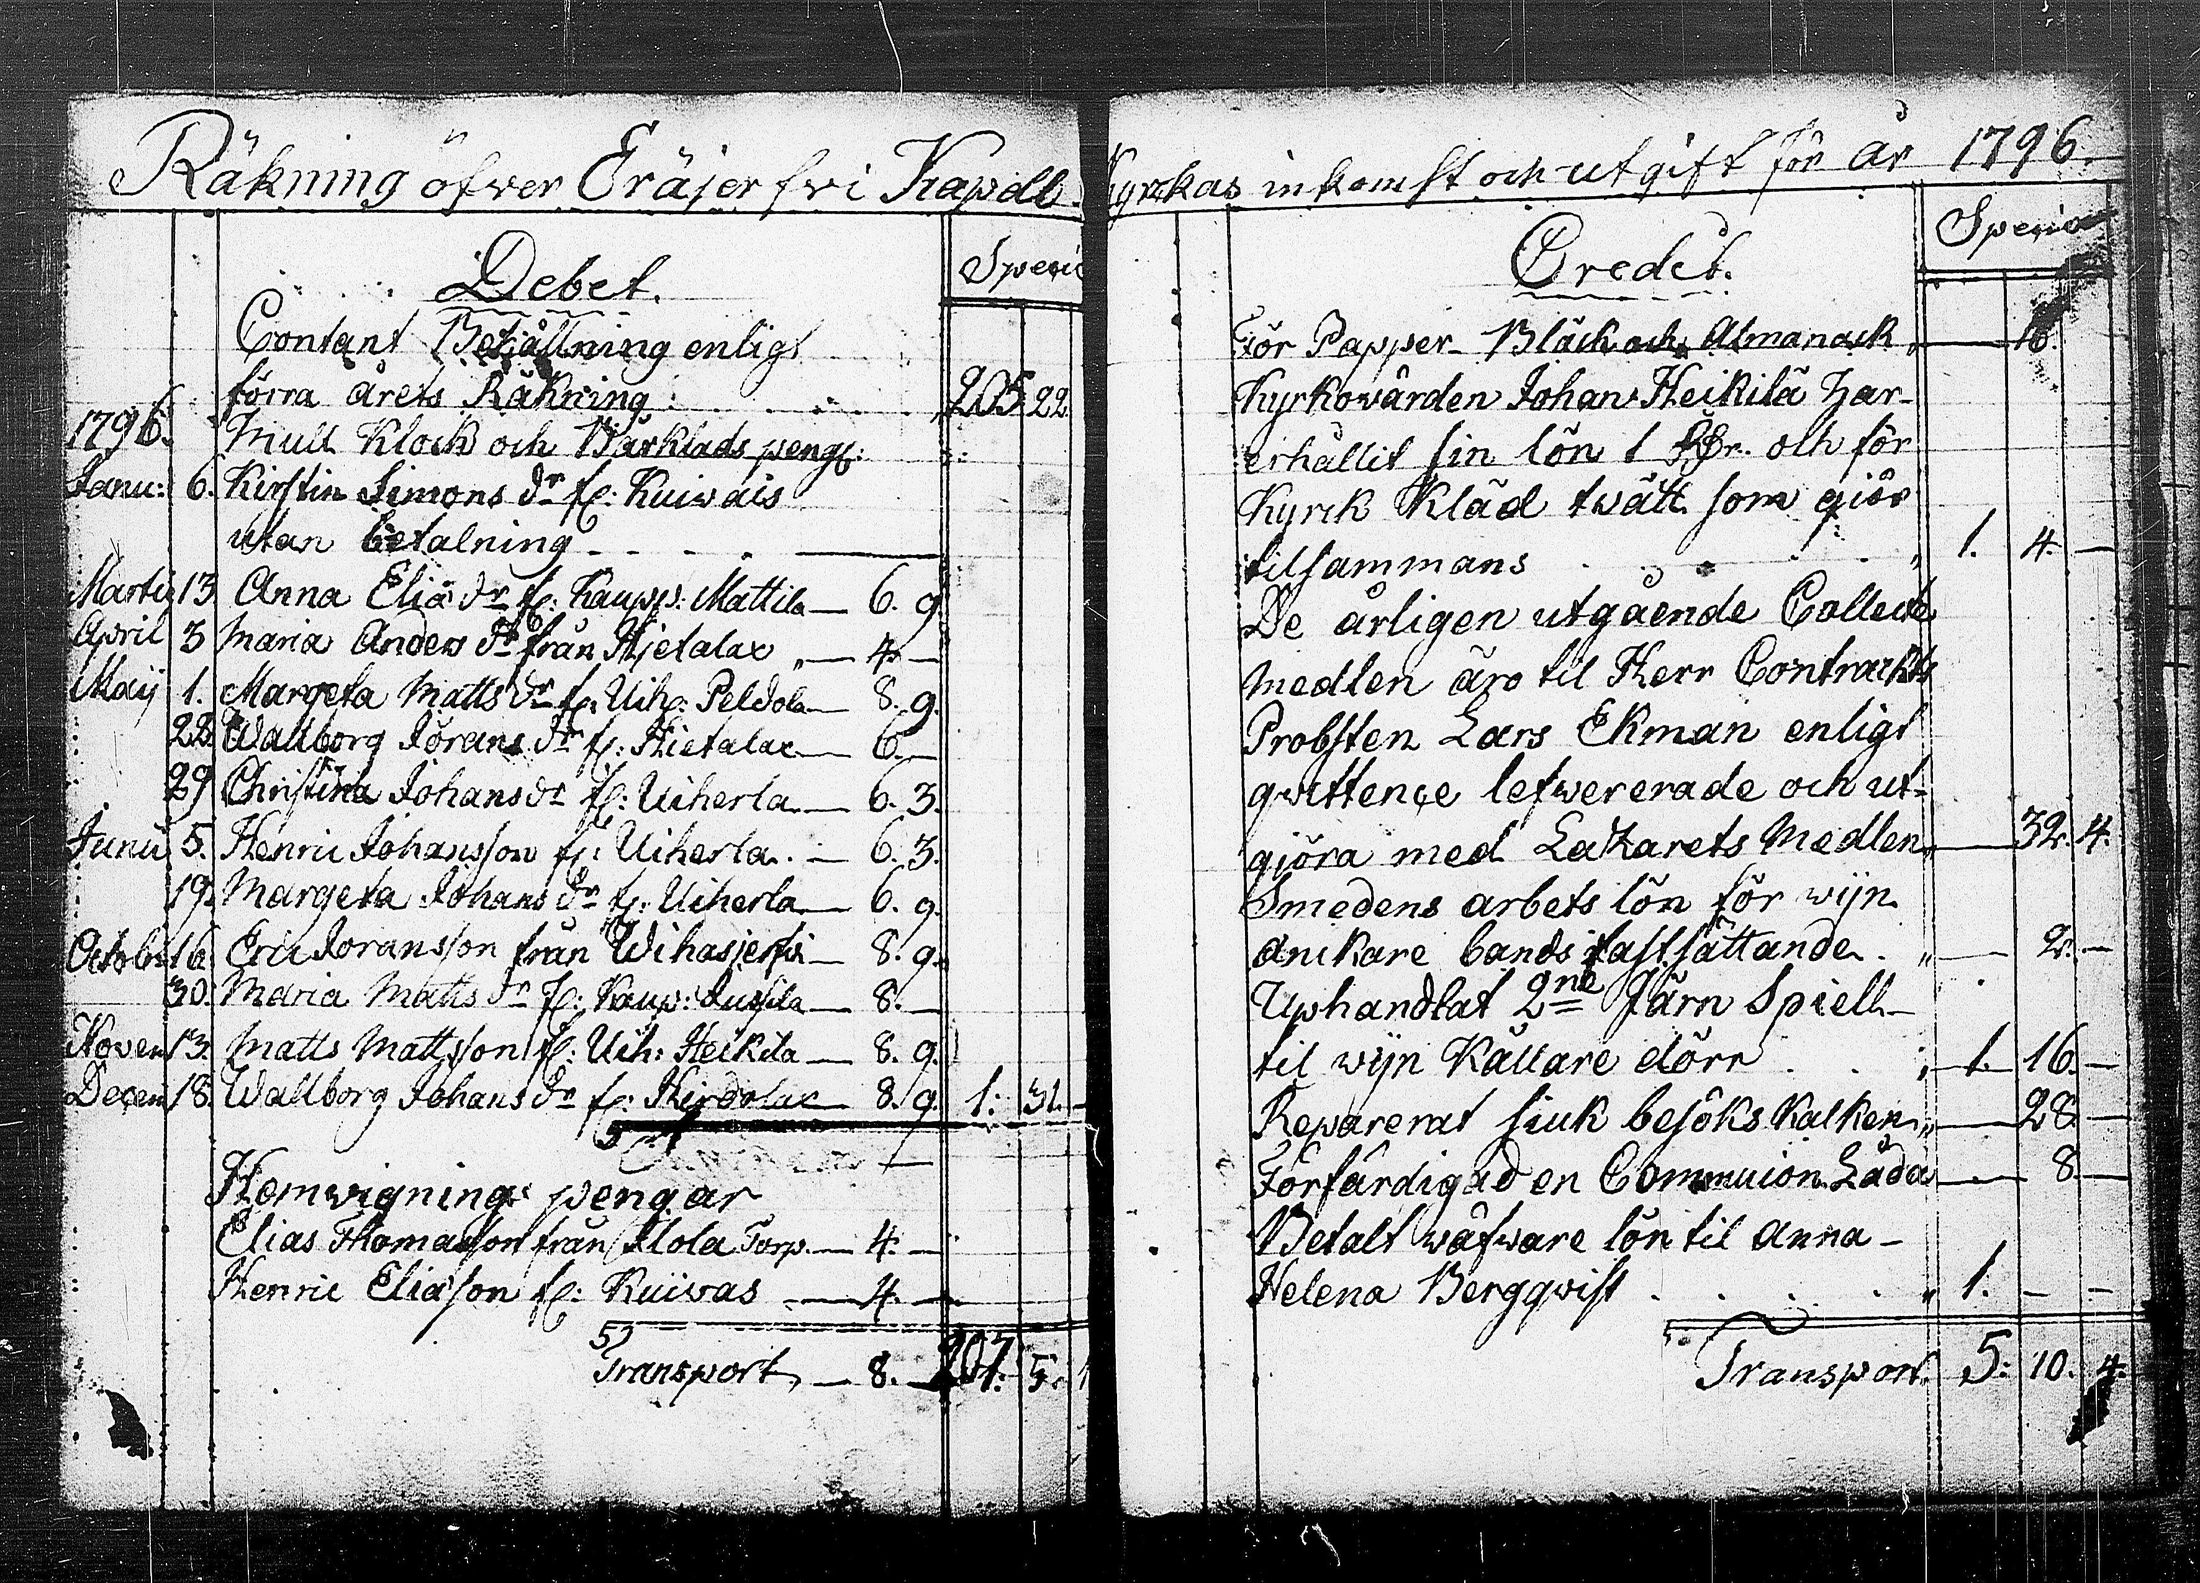 Räkning öfver Eräjerfvi Kapell Kyrckas inkomst och utgift för år 1796.
Debet. Specie
Contant Behållning enligt
förra årets Räkning 205 22
1796. Mull Klock och Bårklads peng:
Janu: 6. Kirstin Simons dr fr: Kuivais
utan betalning
Martii 13 Anna Elia dr fr: Kaupp: Mattila — 6. 9
April 3 Maria Anders dr från Hietalax — 4. —
Maij 1. Margeta Matts dr fr: Uih: Peldola — 8. 9.
22. Wallborg Jörans dr fr: Hietalax — 6. —
29 Christina Johans dr fr: Uiherla — 6. 3.
Junii 5. Henric Johansson fr: Uiherla. — 6. 3.
19. Margeta Johans dr fr: Uiherla — 6. 9.
Octob: 16. Eric Joransson från Wihasjerfvi — 8. 9.
30. Maria Matts dr fr: Kaup: Jussila — 8. —
Novem 13. Matts Mattsson fr: Uih: Heikila — 8. 9.
Decem 18. Wallborg Johans dr fr: Hirdolax — 8. 9. 1: 31. -
Hemvignings pengar
Elias Thomasson från Ilola Torp. — 4. —
Henric Eliasson fr: Kuivas — 4. —
Transport, — 8. — 207: 5: 1
Credit. Specie
För Papper Bläck och Almanack „ — 16.
Kyrkovärden Johan Heikilä har
erhållit sin lön 1 Rdr. och för
Kyrck Kläd tvätt som giör
tilsammans „ 1. 4. —
De årligen utgående Collecte
medlen äro til Herr Contrackts
Probsten Lars Ekman enligt
qvittence lefwererade och ut-
giöra med Lazarets Medlen „ — 32. 4.
Smedens arbets lön för wijn
ankare bands fastsättande. „ — 2. —
Uphandlat 2ne Järn Spiell
til wijn Källare dörr „ 1. 16. —
Reparerat siuk besöks Kalken „ — 28. —
Förfärdigad en Commuion Låda — 8. —
Betalt wäfware lön til Anna
Helena Bergqvist „ 1. — —
Transport. 5: 10. 4.